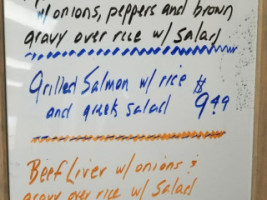 w/onions, peppers and brown
gravy over rice w/ Salad
Grilled Salmon w/ rice $
and greek salad 9.49
Beef Liver w/onions &
gravy over rice w/ Salad